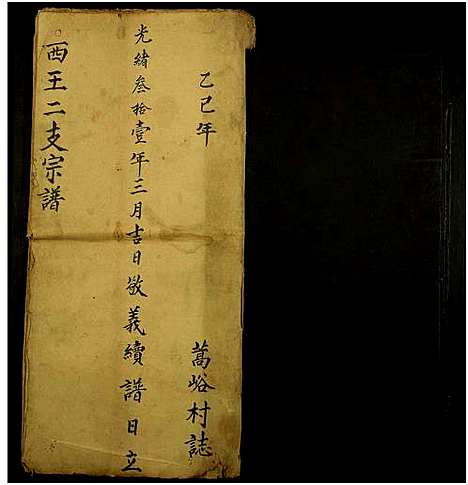 乙巳年　萬峪村誌
光緒叁拾壹年三月吉日敬義續譜日立
西王二支宗譜